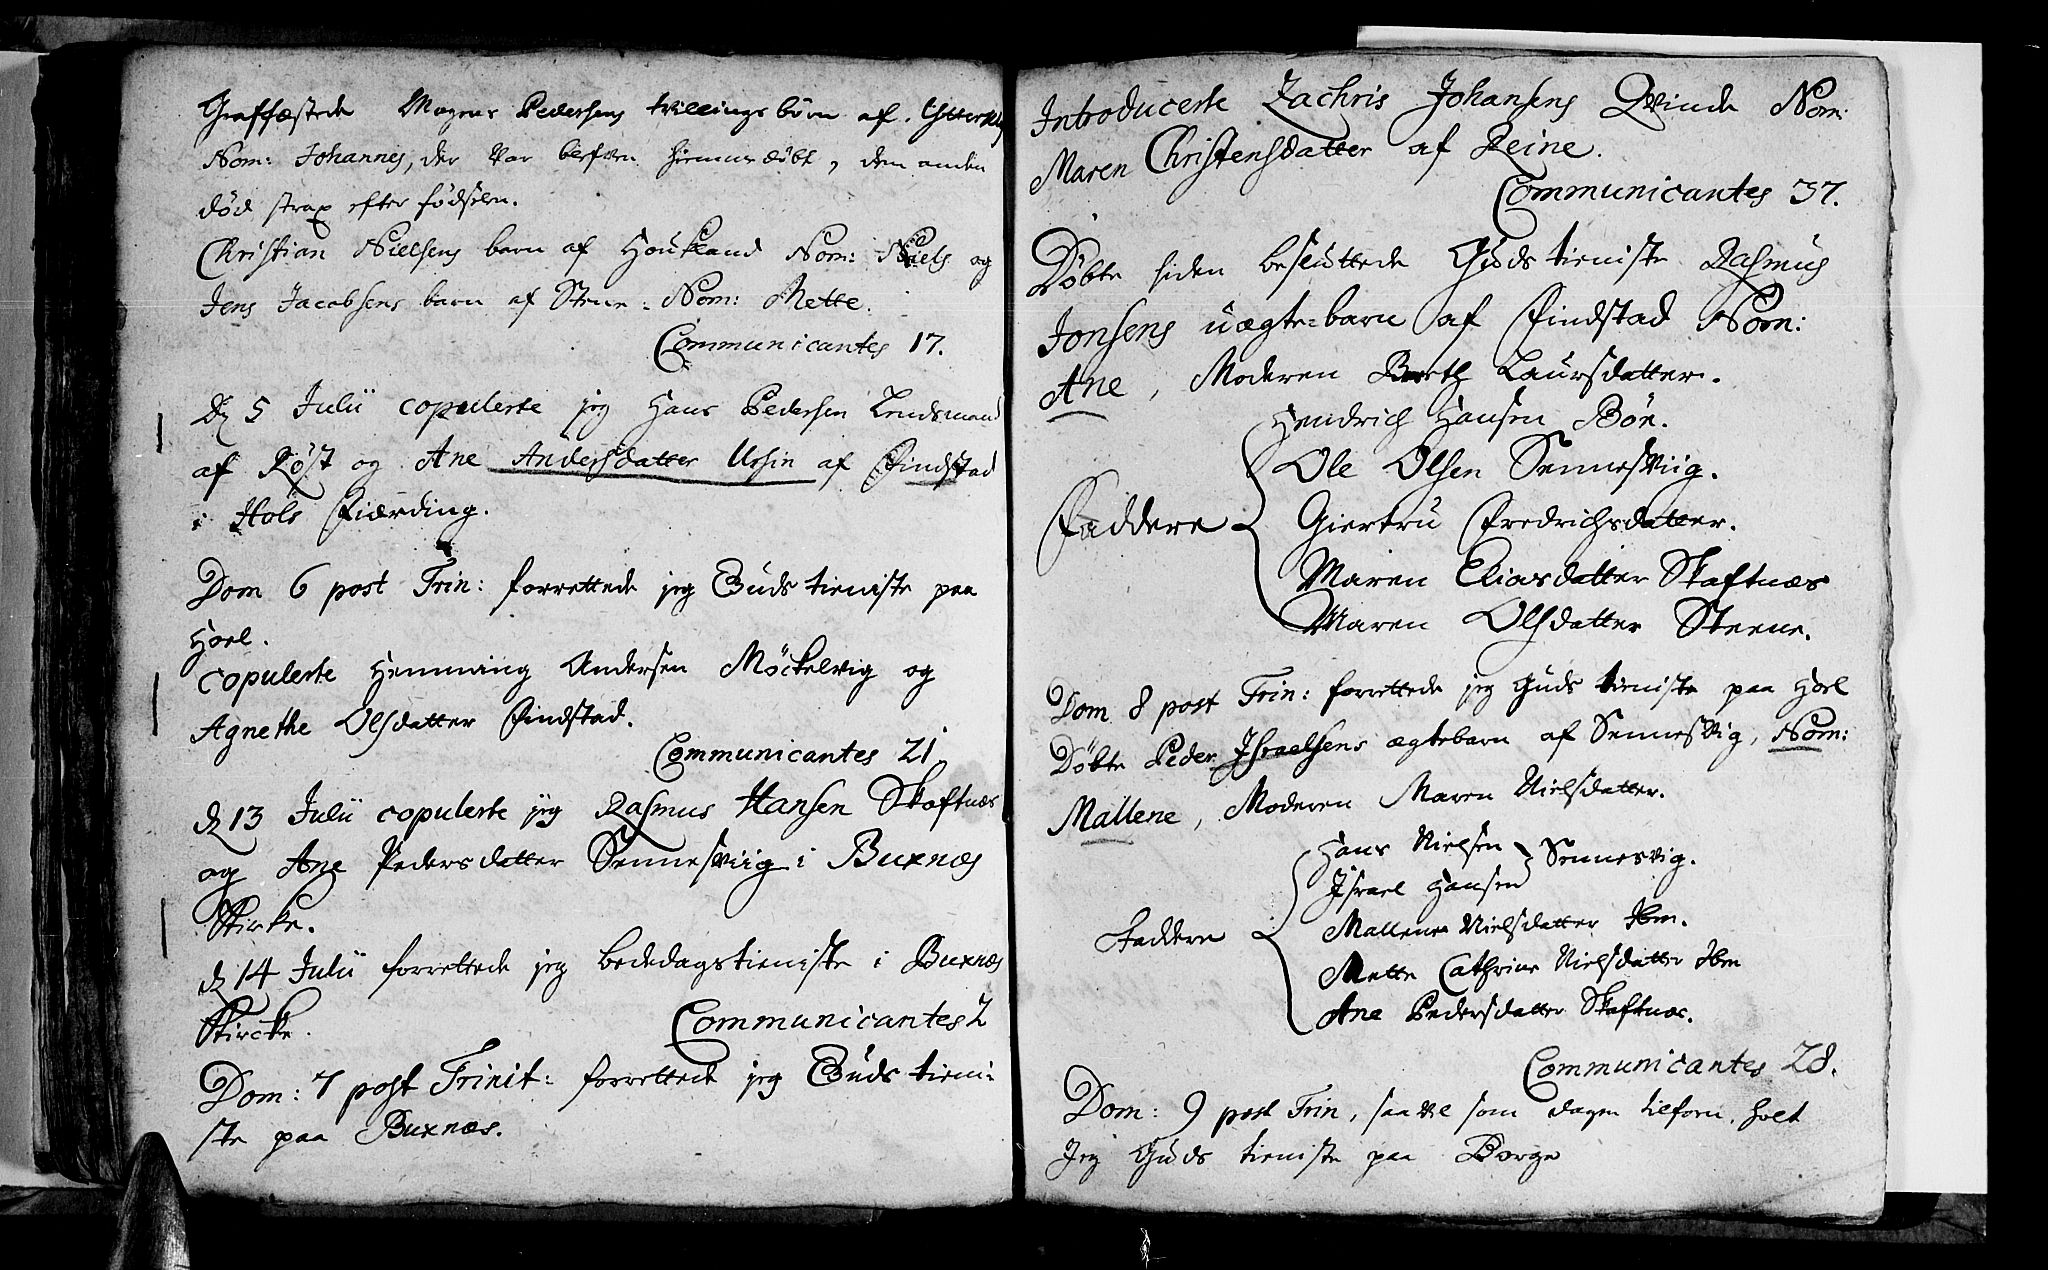 Graffæstede Mogens Pedersens tvillings børn af
Nom: Johannes, der var hiemmedøbt, den anden
død strax efter fødselen.
Christian Nielsens barn af Houkland Nom: Niels og
Jens Jacobsens barn af Steene. Nom: Mette.
Communicantes 17.
D 5 Julii copulerte jeg Hans Pedersen Lendsmand
af Røst og Ane Andersdatter Ursin af Findstad
i Hols Fiærding.
Dom 6 post Trin: forrettede jeg Guds tieniste paa
Hoel.
copulerte Hemming Andersen Möckelvig og
Agnethe Olsdatter Findstad.
Communicantes 21
d 13 Julii copulerte jeg Rasmus Hansen Skaftnæs
og Ane Pedersdatter Sennesviig i Buxnæs
Kirke.
d 14 Julii forrettede jeg bededagstieniste i Buxnæs
Kircke.
Communicantes 2
Dom: 7 post Trinit: forrettede jeg Guds tieni-
ste paa Buxnæs.
Introducerte Zachris Johansens Qvinde Nom:
Maren Christensdatter af Reine.
Communicantes 37.
Døbte siden besluttede Guds tieniste Rasmus
Jonsens uægte-barn af Findstad Nom:
Ane, Moderen Berth Laursdatter.
Hendrich Hansen Böe.
Ole Olsen Sennesviig.
Faddere Giertru Fredrichsdatter.
Maren Eliasdatter Skaftnæs
Maren Olsdatter Steene.
Dom 8 post Trin: forrettede jeg Guds tieniste paa Hoel
Døbte Peder Israelsens ægtebarn af Sennesvig, Nom:
Mallene, Moderen Maren Nielsdatter.
Hans Nielsen Sennesvig.
Israel Hansen
Faddere Mallene Nielsdatter Ibm.
Mette Cathrine Nielsdatter Ibm
Ane Pedersdatter Skaftnæs.
Communicantes 28.
Dom: 9 post Trin, saa vel som dagen tilforn, holt
Jeg Guds tieniste paa Borge